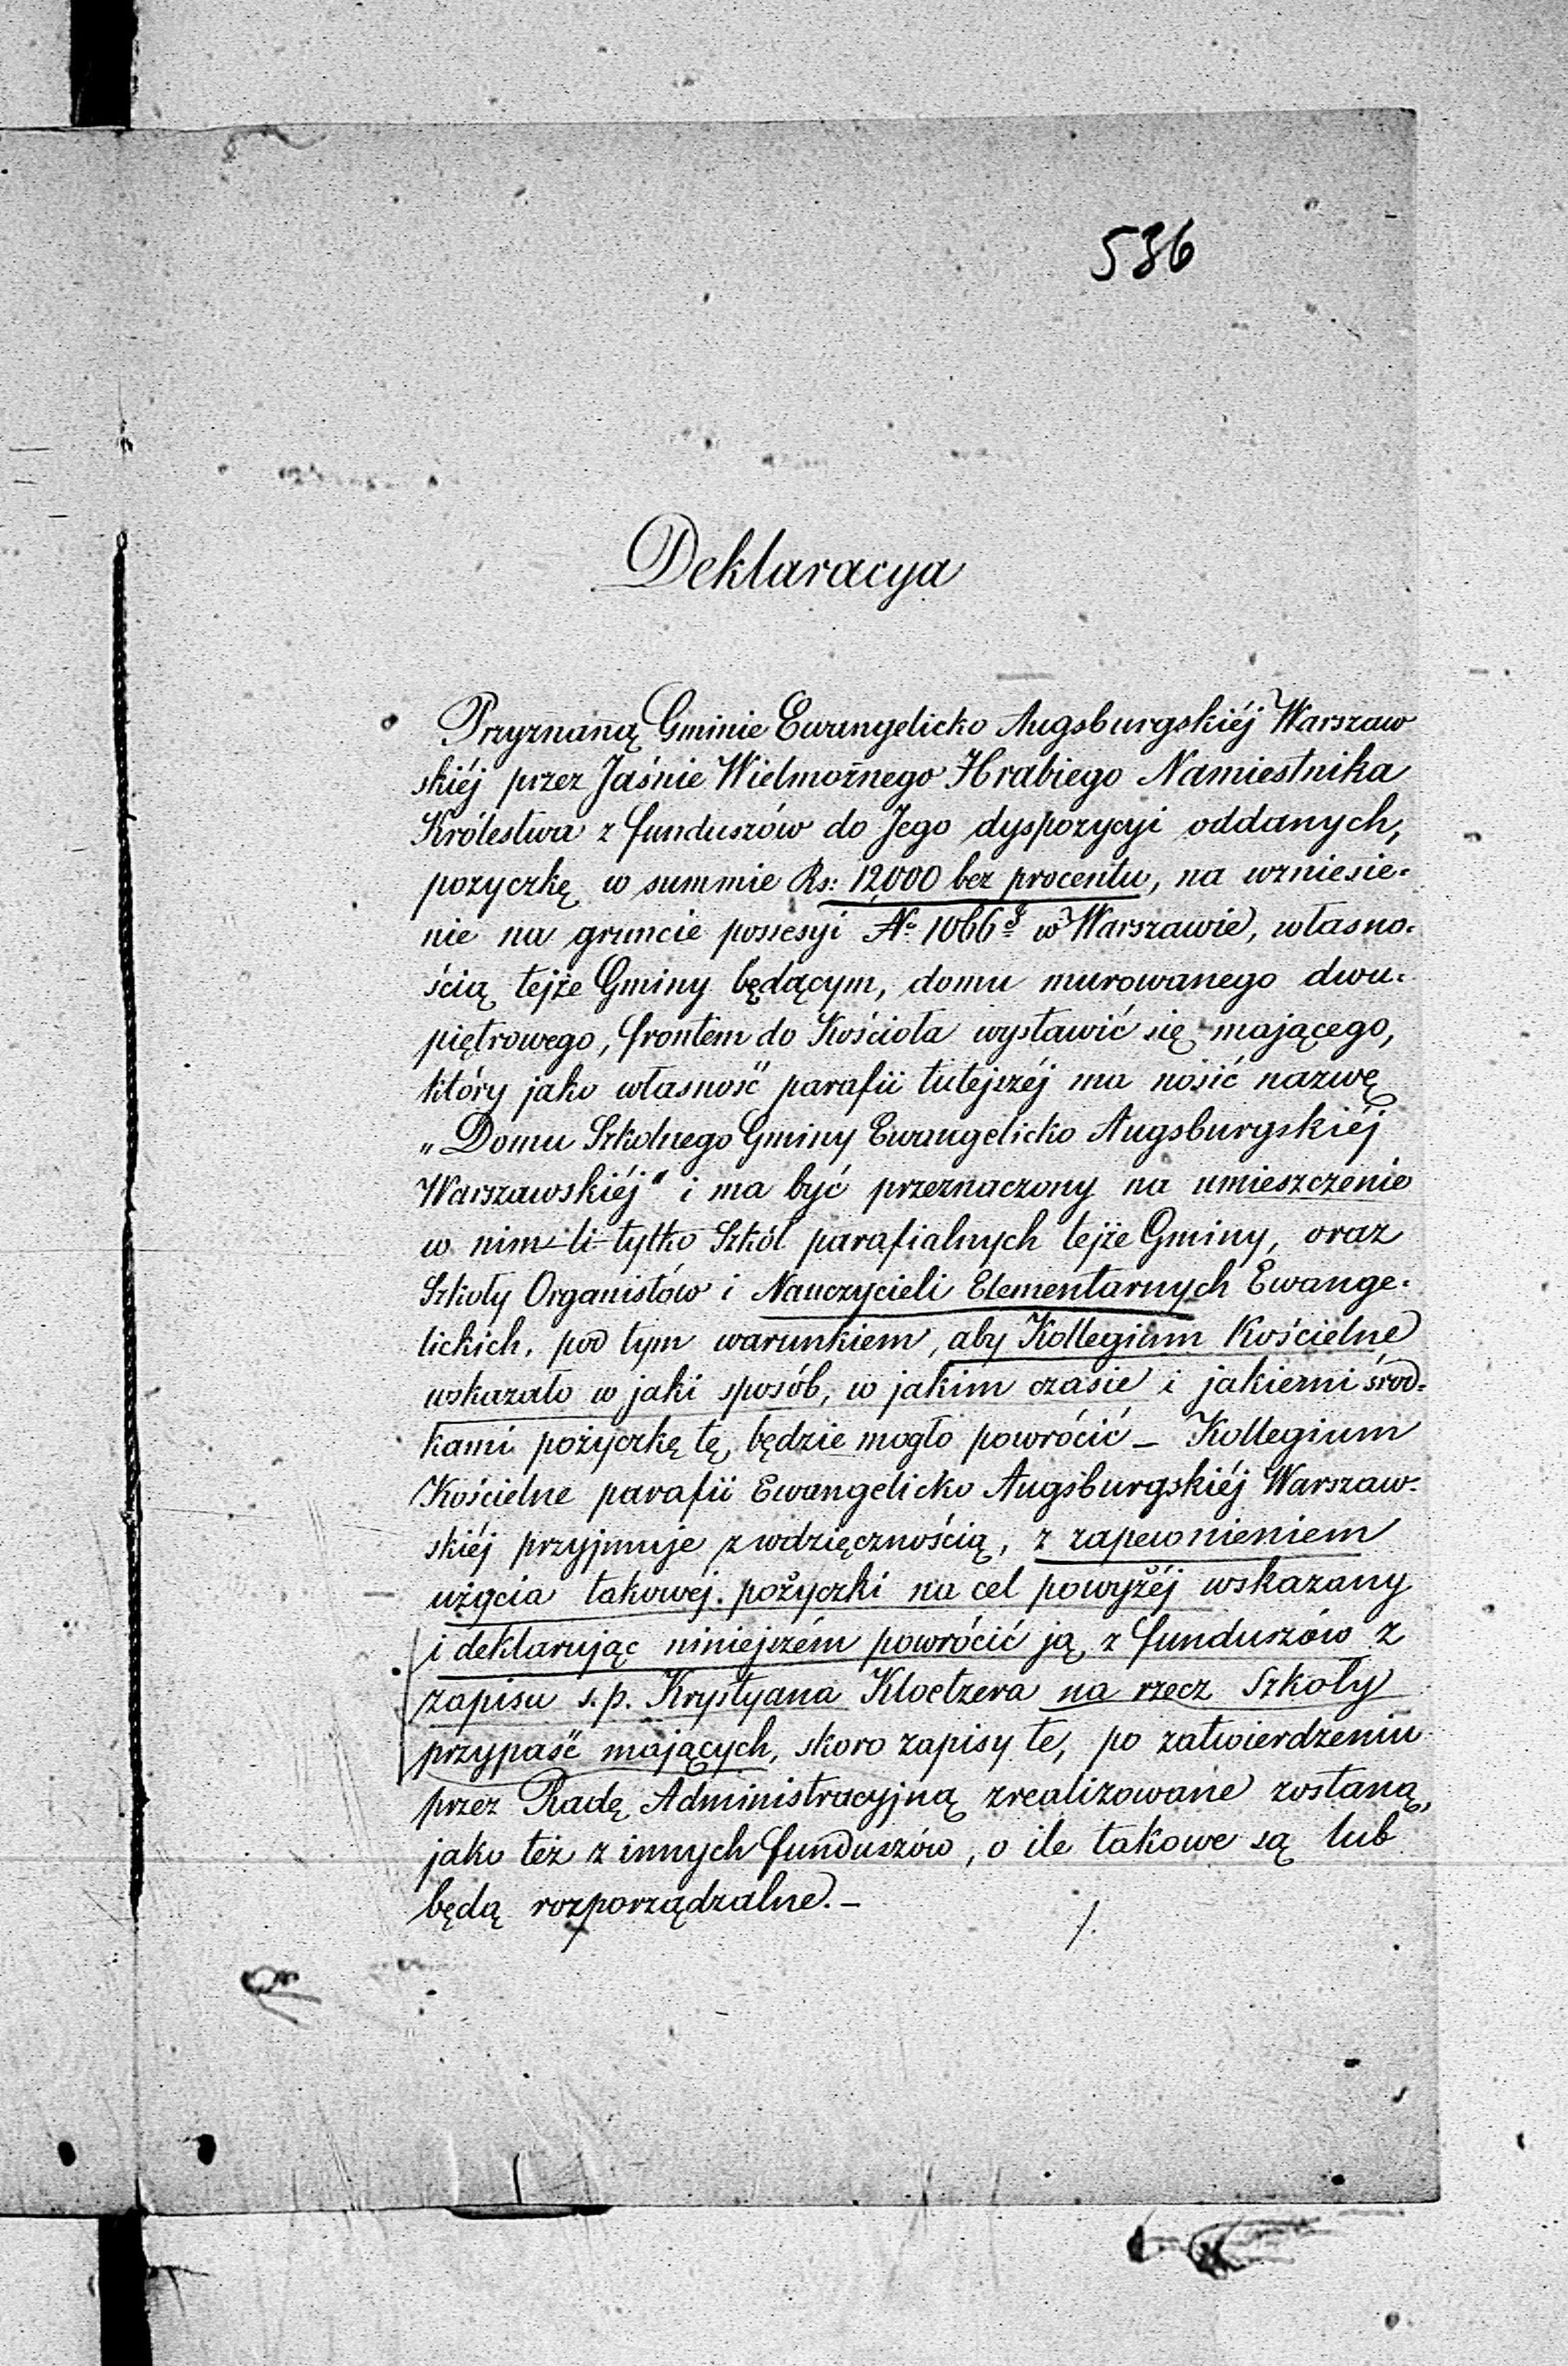 536
Deklaracya
Przyznaną Gminie Ewangelicko Augsburgskiéj Warszaw
skiéj przez Jaśnie Wielmożnego Hrabiego Namiestnika
Królestwa z funduszów do Jego dyspozycyi oddanych,
pożyczkę w summie Rs: 12,000 bez procentu, na wzniesie-
nie na gruncie possesyi No 1066 w Warszawie, własno-
ścią tejże Gminy będącym, domu murowanego dwu-
piętrowego, frontem do Kościoła wystawić się mającego,
który jako własność parafii tutejszéj ma nosić nazwę
„Domu Szkolnego Gminy Ewangelicko Augsburgskiéj
Warszawskiéj" i ma być przeznaczony na umieszczenie
w nim li tylko Szkół parafialnych tejże Gminy, oraz
Szkoły Organistów i Nauczycieli Elementarnych Ewange-
lickich, pod tym warunkiem, aby Kollegium Kościelne
wskazało w jaki sposób, w jakim czasie i jakiemi środ-
kami pożyczkę tę, będzie mogło powrócić – Kollegium
Kościelne parafii Ewangelicko Augsburgskiéj Warszaw-
skiéj przyjmuje z wdzięcznością, z zapewnieniem
użycia takowej pożyczki na cel powyżéj wskazany
i deklarując niniejszém powrócić ją z funduszów z
zapisu ś.p. Krystyana Kloetzera na rzecz Szkoły
przypaść mających, skoro zapisy te, po zatwierdzeniu
przez Radę Administracyjną zrealizowane zostaną,
jako też z innych funduszów, o ile takowe są lub
będą rozporządzalne. –